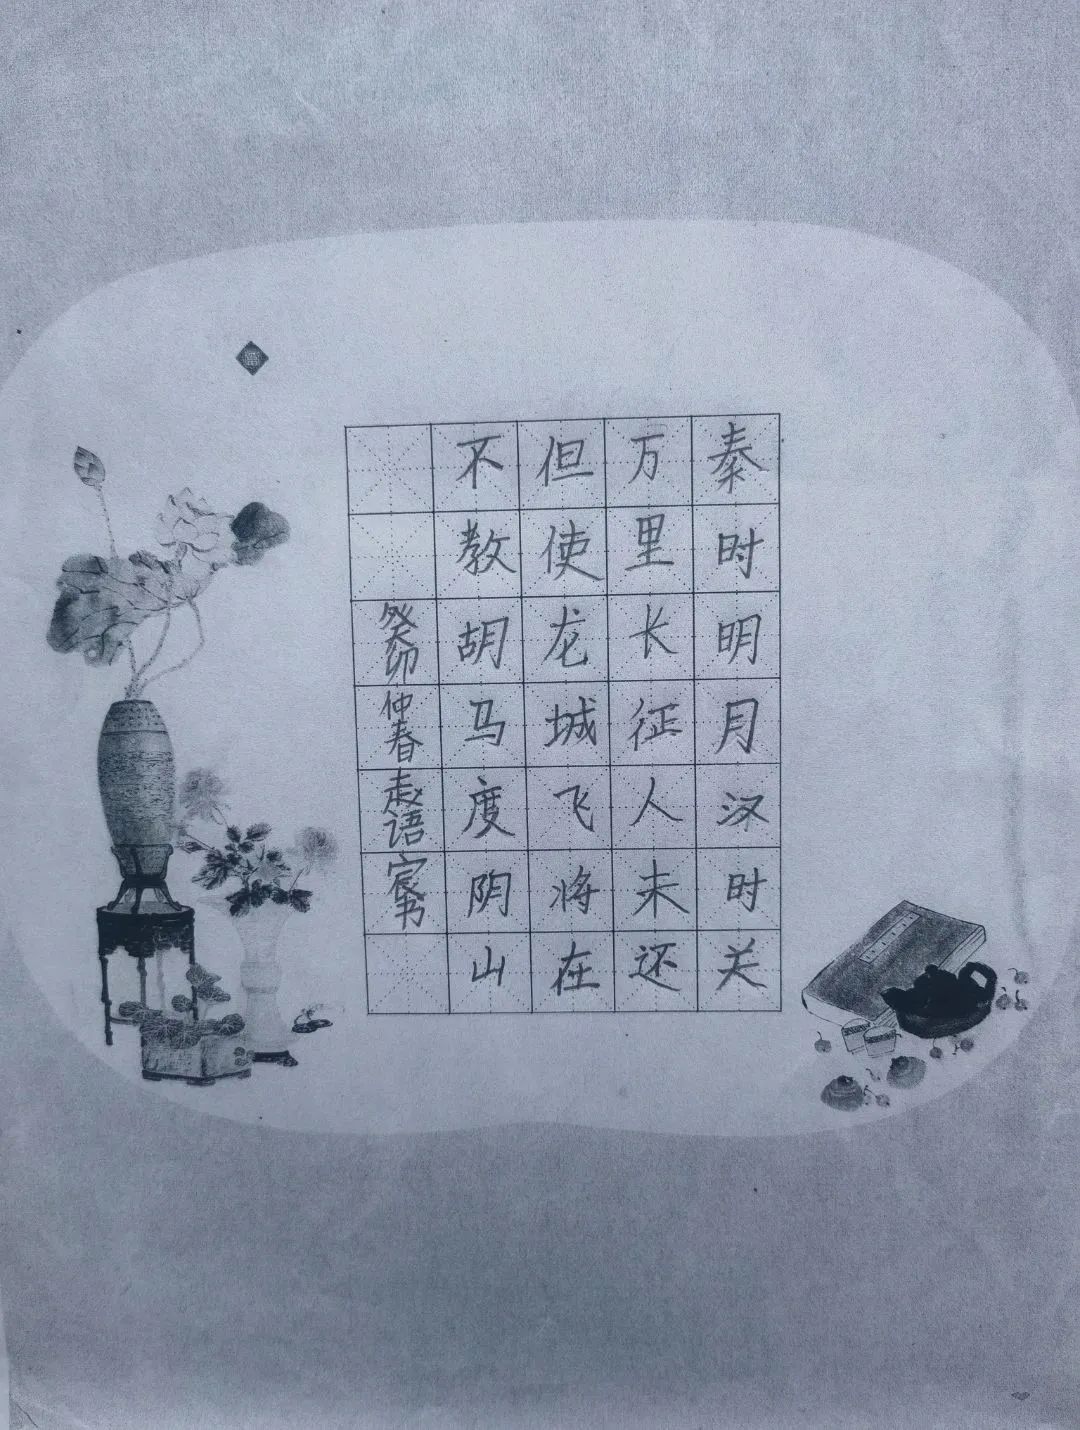 秦时明月汉时关
万里长征人未还
但使龙城飞将在
不教胡马度阴山
癸卯仲春赵语宸书